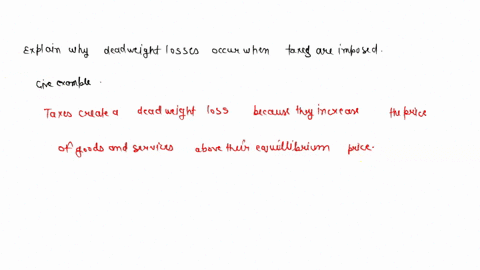 Explain why deadweight losses occur when taxes are imposed.
Give example.
Taxes create a deadweight loss because they increase the price
of goods and services above their equillibrium price.